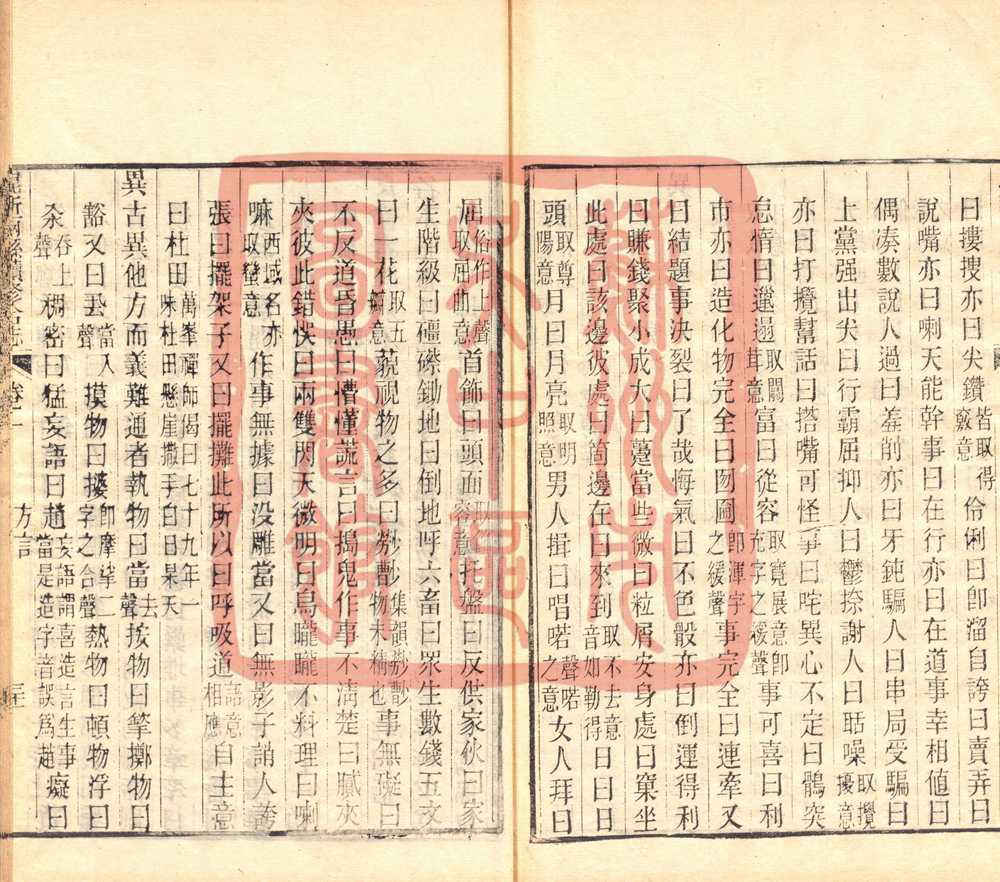 曰摟搜亦曰尖鑽皆取得竅意伶俐曰卽溜自誇曰賣弄曰
說嘴亦曰喇天能幹事曰在行亦曰在道事幸相値曰
偶湊數說人過曰羞削亦曰牙鈍騙人曰串局受騙曰
上黨强出尖曰行霸屈抑人曰鬱捺謝人曰聒噪取攪擾意
亦曰打攪幫話曰搭嘴可怪事曰咤異心不定曰鶻突
怠惰曰邋遢取闒茸意富曰從容取寬展意卽充字之緩聲事可喜曰利
市亦曰造化物完全曰囫圇卽渾字之緩聲事完全曰連牽又
曰結題事決裂曰了哉悔氣曰不色骰亦曰倒運得利
曰賺錢聚小成大曰躉當些微曰粒屑安身處曰窠坐
此處曰該邊彼處曰箇邊在曰來到取不去意音如勒得日曰日
頭取尊陽意月曰月亮取明照意男人揖曰唱喏聲喏之意女人拜曰
屈俗作上聲取屈曲意首飾曰頭面取容意托盤曰反供家伙曰家
生階級曰礓磜鋤地曰倒地呼六畜曰眾生數錢五文
曰一花取五瓣意藐視物之多曰勬麨集韻麨麨物未精也事無礙曰
不反道昏愚曰懵懂謊言曰搗鬼作事不淸楚曰膩夾
夾彼此錯佚曰兩雙閃天微明曰烏矓矓不料理曰喇
嘛西域名亦取蠻意作事無據曰没雕當又曰無影子誚人夸
張曰擺架子又曰擺攤此所以曰呼吸道語意相應自主意
曰杜田萬峯禪師偈曰七十九年一味杜田懸崖撒手白日杲天
異古異他方而義難通者執物曰當去聲按物曰拏擲物曰
豁又曰厾當入聲摸物曰攓卽摩挲二字之合聲熱物曰頓物浮曰
汆吞上聲稠密曰猛妄語曰趙妄語謂喜造言生事當是造字音誤爲趙癡曰
卷一
方言